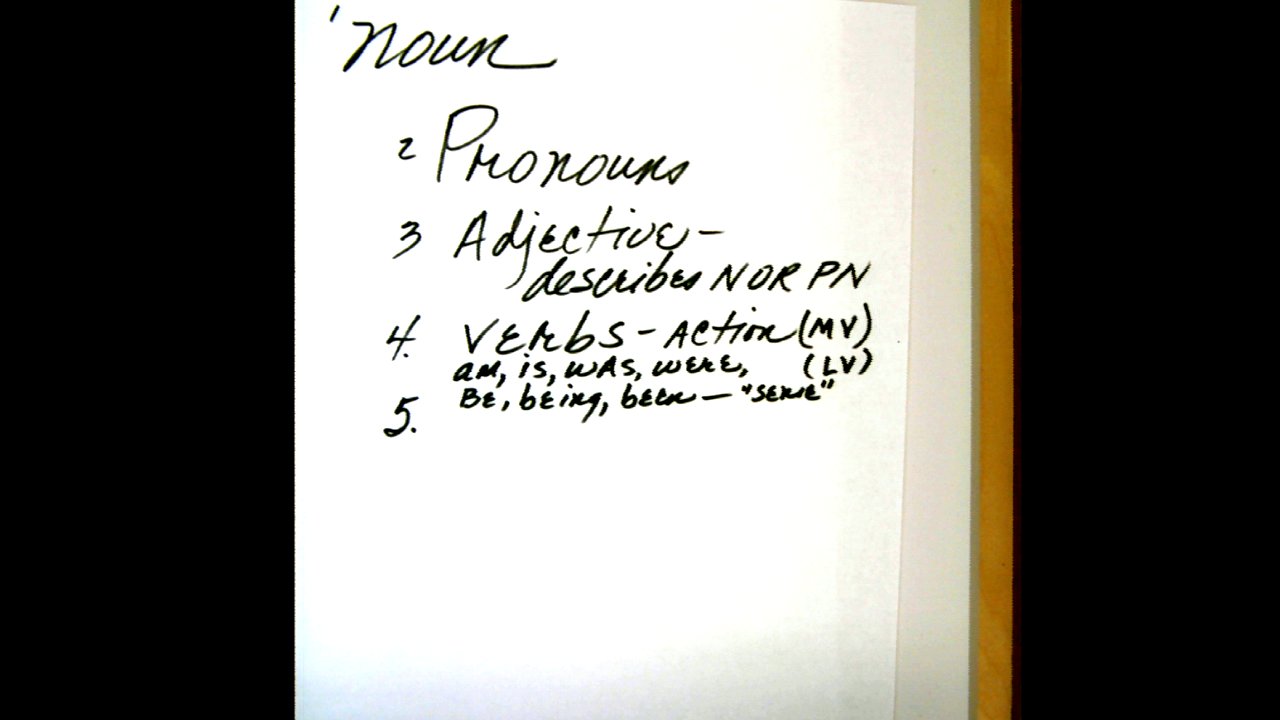 ' noun
2 Pronouns
3 Adjective -
describes N OR PN
4. Verbs - Action (MV)
am, is, was, were, (LV)
Be, being, been -
5.